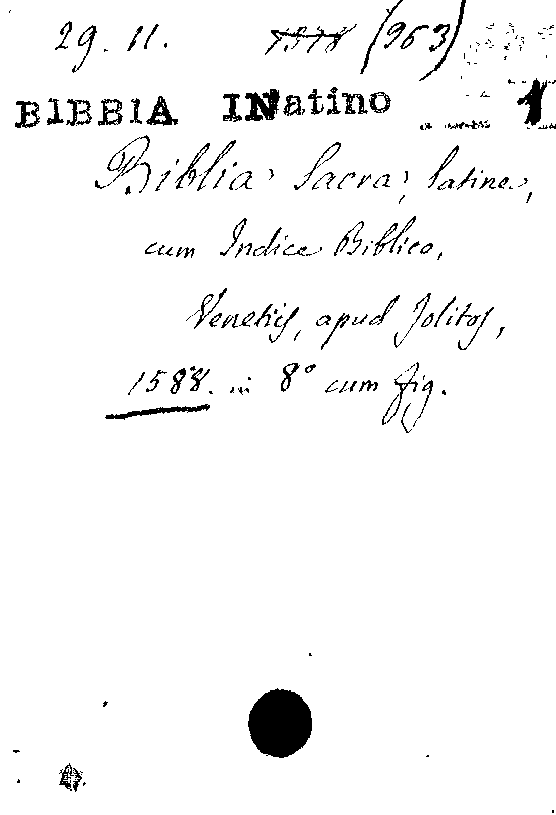 29. 11. 1378 (963)
BIBBIA INatino 1
Biblia Sacra, latine,
cum Indice Biblico,
Venetijs, apud Jolitos,
1588. in 8° cum fig.